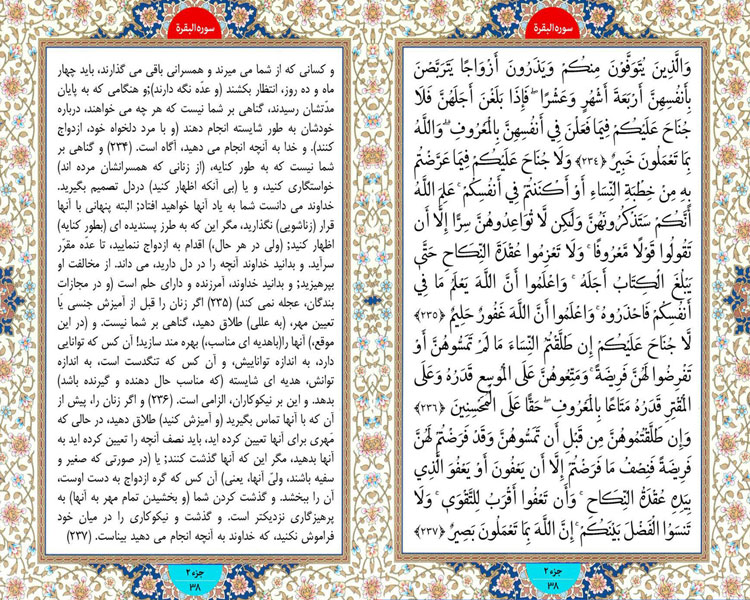 سوره البقرة
وَالَّذِينَ يُتَوَفَّوْنَ مِنكُمْ وَيَذَرُونَ أَزْوَاجًا يَتَرَبَّصْنَ
بِأَنفُسِهِنَّ أَرْبَعَةَ أَشْهُرٍ وَعَشْرًا ۖ فَإِذَا بَلَغْنَ أَجَلَهُنَّ فَلَا
جُنَاحَ عَلَيْكُمْ فِيمَا فَعَلْنَ فِي أَنفُسِهِنَّ بِالْمَعْرُوفِ ۗ وَاللَّهُ
بِمَا تَعْمَلُونَ خَبِيرٌ ﴿٢٣٤﴾ وَلَا جُنَاحَ عَلَيْكُمْ فِيمَا عَرَّضْتُم
بِهِ مِنْ خِطْبَةِ النِّسَاءِ أَوْ أَكْنَنتُمْ فِي أَنفُسِكُمْ ۚ عَلِمَ اللَّهُ
أَنَّكُمْ سَتَذْكُرُونَهُنَّ وَلَٰكِن لَّا تُوَاعِدُوهُنَّ سِرًّا إِلَّا أَن
تَقُولُوا قَوْلًا مَّعْرُوفًا ۚ وَلَا تَعْزِمُوا عُقْدَةَ النِّكَاحِ حَتَّىٰ
يَبْلُغَ الْكِتَابُ أَجَلَهُ ۚ وَاعْلَمُوا أَنَّ اللَّهَ يَعْلَمُ مَا فِي
أَنفُسِكُمْ فَاحْذَرُوهُ ۚ وَاعْلَمُوا أَنَّ اللَّهَ غَفُورٌ حَلِيمٌ ﴿٢٣٥﴾
لَّا جُنَاحَ عَلَيْكُمْ إِن طَلَّقْتُمُ النِّسَاءَ مَا لَمْ تَمَسُّوهُنَّ أَوْ
تَفْرِضُوا لَهُنَّ فَرِيضَةً ۚ وَمَتِّعُوهُنَّ عَلَى الْمُوسِعِ قَدَرُهُ وَعَلَى
الْمُقْتِرِ قَدَرُهُ مَتَاعًا بِالْمَعْرُوفِ ۖ حَقًّا عَلَى الْمُحْسِنِينَ ﴿٢٣٦﴾
وَإِن طَلَّقْتُمُوهُنَّ مِن قَبْلِ أَن تَمَسُّوهُنَّ وَقَدْ فَرَضْتُمْ لَهُنَّ
فَرِيضَةً فَنِصْفُ مَا فَرَضْتُمْ إِلَّا أَن يَعْفُونَ أَوْ يَعْفُوَ الَّذِي
بِيَدِهِ عُقْدَةُ النِّكَاحِ ۚ وَأَن تَعْفُوا أَقْرَبُ لِلتَّقْوَىٰ ۚ وَلَا
تَنسَوُا الْفَضْلَ بَيْنَكُمْ ۚ إِنَّ اللَّهَ بِمَا تَعْمَلُونَ بَصِيرٌ ﴿٢٣٧﴾
جزء ۲
۳۸
سوره البقرة
و کسانی که از شما می میرند و همسرانی باقی می گذارند، باید چهار
ماه و ده روز، انتظار بکشند (و عدّه نگه دارند)؛و هنگامی که به پایان
مدّتشان رسیدند، گناهی بر شما نیست که هر چه می خواهند، درباره
خودشان به طور شایسته انجام دهند (و با مرد دلخواه خود، ازدواج
کنند). و خدا به آنچه انجام می دهید، آگاه است. (۲۳۴) و گناهی بر
شما نیست که به طور کنایه، (از زنانی که همسرانشان مرده اند)
خواستگاری کنید، و یا (بی آنکه اظهار کنید) دردل تصمیم بگیرید.
خداوند می دانست شما به یاد آنها خواهید افتاد; البته پنهانی با آنها
قرار (زناشویی) نگذارید، مگر این که به طرز پسندیده ای (بطور کنایه)
اظهار کنید; (ولی در هر حال،) اقدام به ازدواج ننمایید، تا عدّه مقرّر
سرآید. و بدانید خداوند آنچه را در دل دارید، می داند. از مخالفت او
بپرهیزید; و بدانید خداوند، آمرزنده و دارای حلم است (و در مجازات
بندگان، عجله نمی کند) (۲۳۵) اگر زنان را قبل از آمیزش جنسی یا
تعیین مهر، (به عللی) طلاق دهید، گناهی بر شما نیست. و (در این
موقع،) آنها را(باهدیه ای مناسب،) بهره مند سازید! آن کس که توانایی
دارد، به اندازه تواناییش، و آن کس که تنگدست است، به اندازه
توانش، هدیه ای شایسته (که مناسب حال دهنده و گیرنده باشد)
بدهد. و این بر نیکوکاران، الزامی است. (۲۳۶) و اگر زنان را، پیش از
آن که با آنها تماس بگیرید و (آمیزش کنید) طلاق دهید، در حالی که
مَهری برای آنها تعیین کرده اید، باید نصف آنچه را تعیین کرده اید به
آنها بدهید، مگر این که آنها گذشت کنند; یا (در صورتی که صغیر و
سفیه باشند، ولیّ آنها، یعنی) آن کس که گره ازدواج به دست اوست،
آن را ببخشد. و گذشت کردن شما (و بخشیدن تمام مهر به آنها) به
پرهیزگاری نزدیکتر است. و گذشت و نیکوکاری را در میان خود
فراموش نکنید، که خداوند به آنچه انجام می دهید بیناست. (۲۳۷)
جزء ۲
۳۸